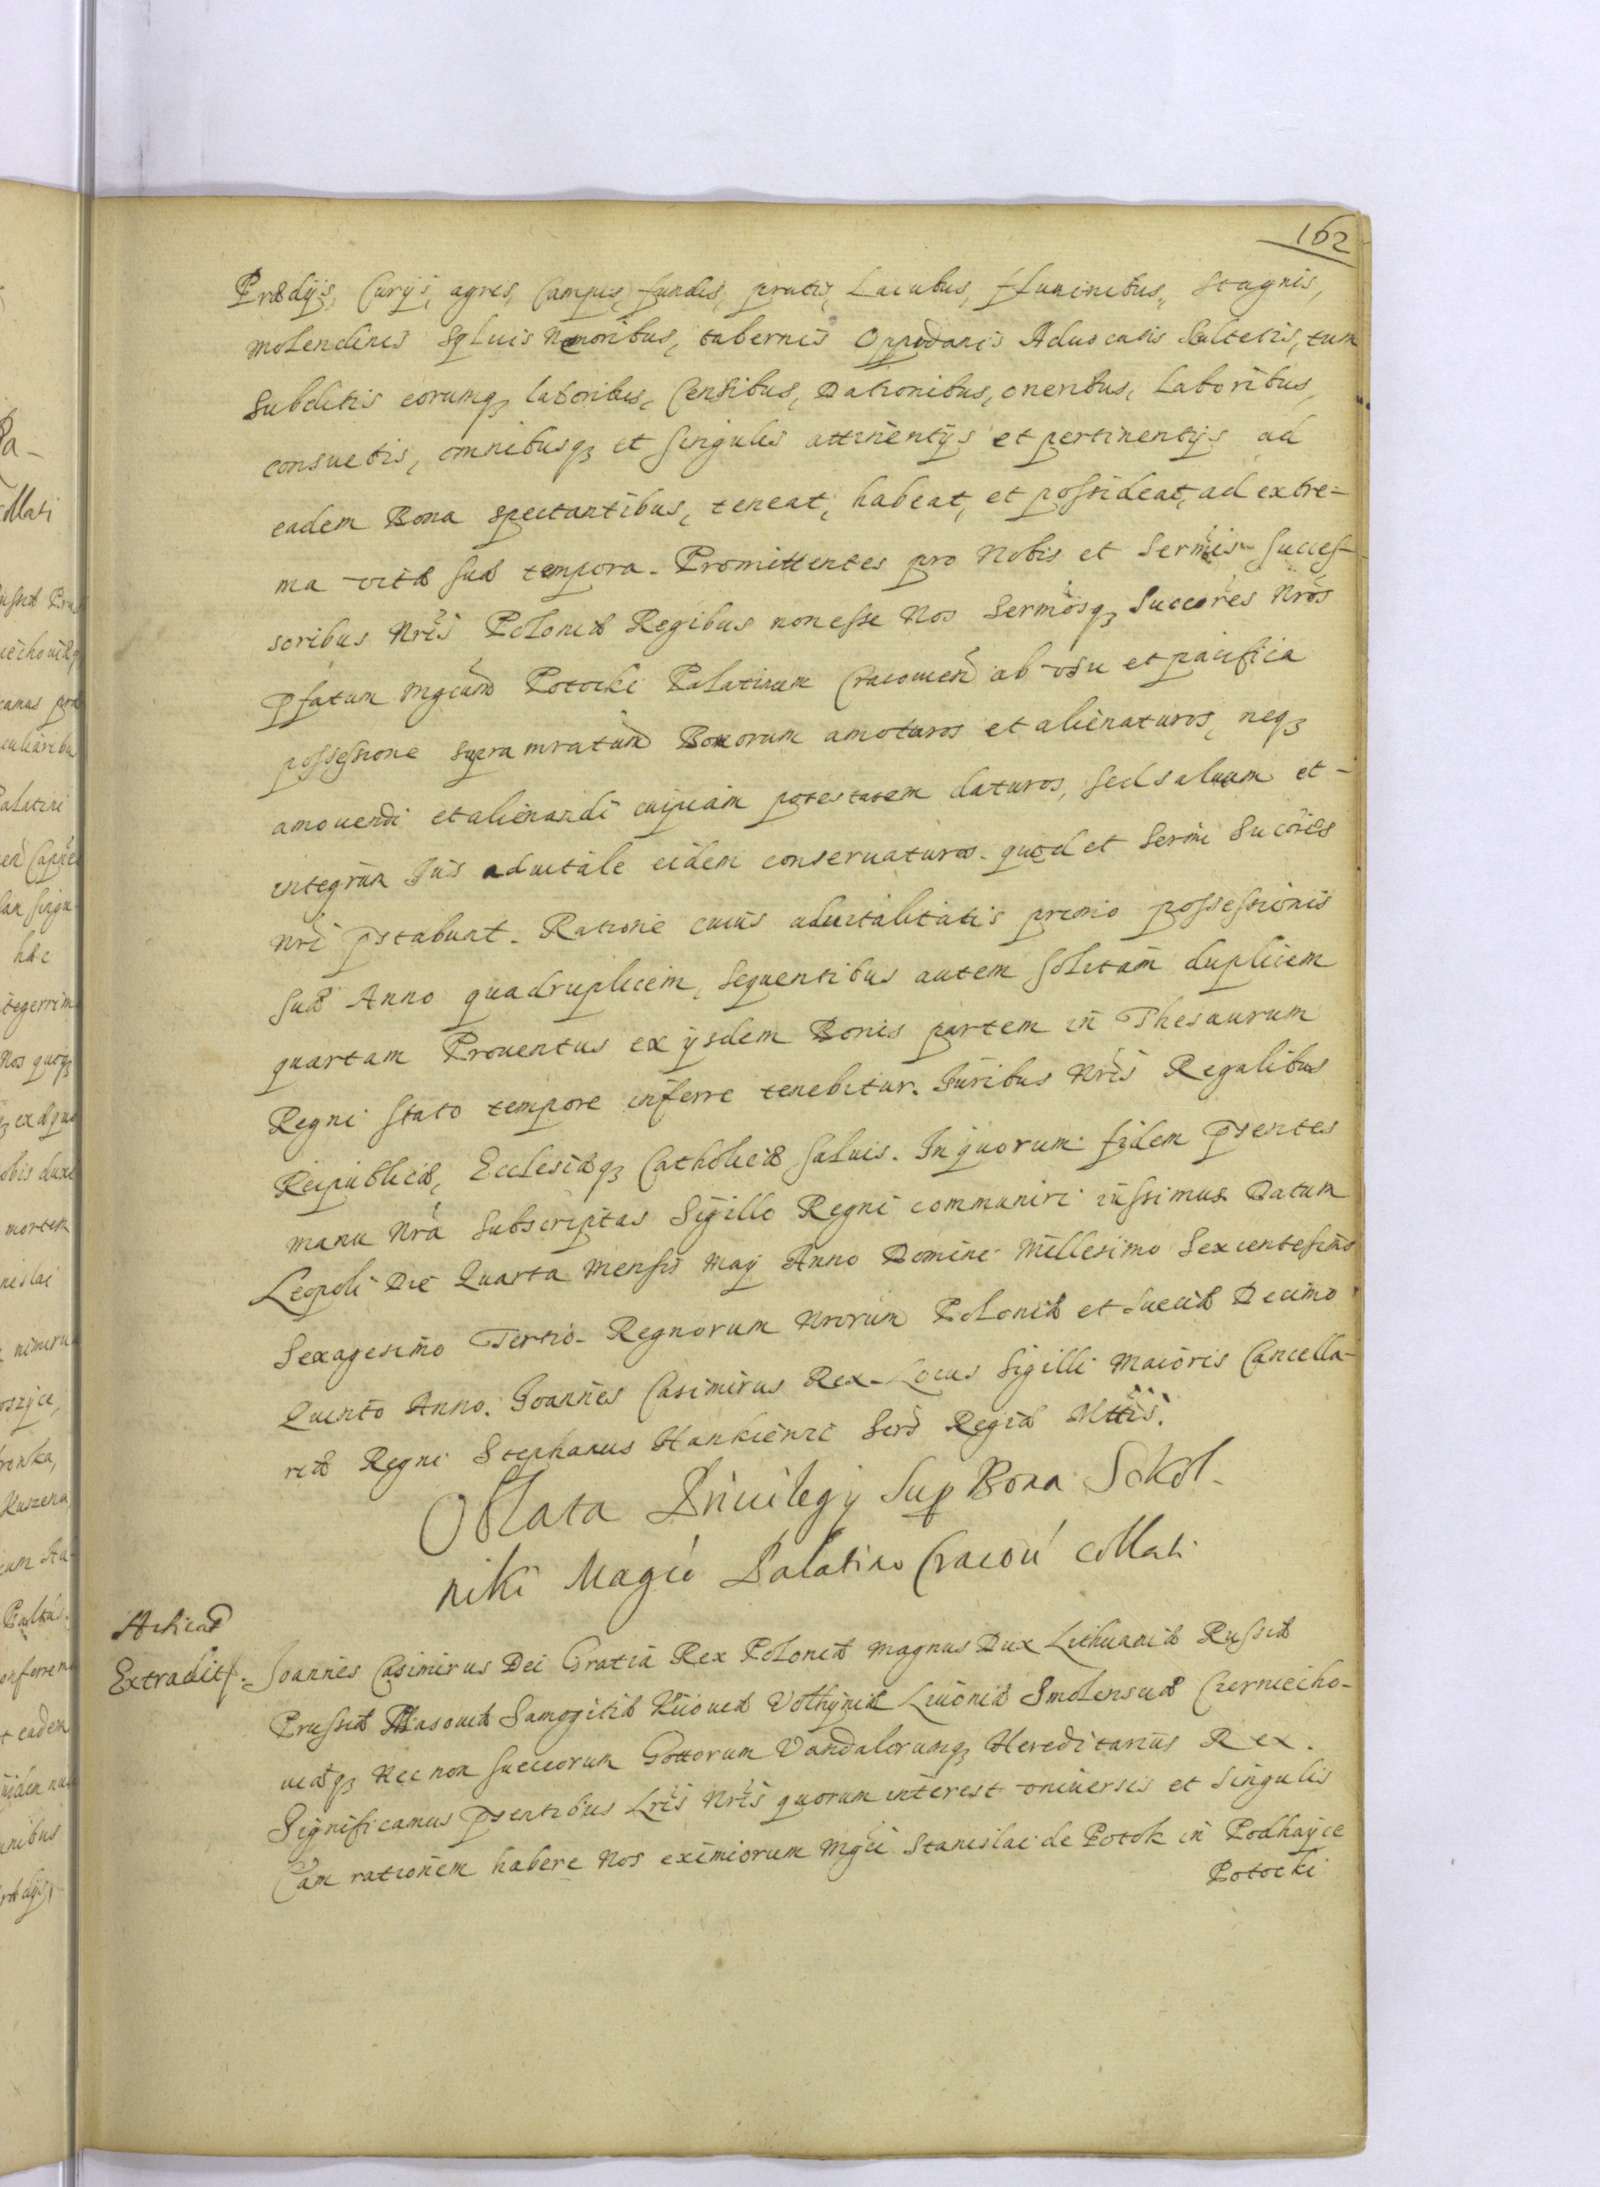 162
Prædijs, Curijs, agris, Campis, fundis, pratis, Lacubus, ffluminibus, Stagnis,
Molendinis Sÿluis Nemoribus, tabernis Oppidanis Aduocatis Scultetis, tum
Subditis eorumq3 laboribus, Censibus, Dationibus, oneribus, Laboribus,
consuetis, omnibusq3 et singulis attinentijs et pertinentijs ad
eadem Bona spectantibus, teneat, habeat, et possideat, ad extre-
ma vitæ suæ tempora. Promittentes pro Nobis et Sermis Succes-
soribus Nris Poloniæ Regibus non esse Nos Sermosq3 Succeres Nros
pfatum Mgcum Potocki Palatinum Cracouien ab vsu et pacifica
possessione supra mratum Bonorum amoturos et alienaturos, neq3
amouendi et alienandi cuipiam potestatem daturos, sed saluum et-
integrum Ius aduitale eidem conseruaturos. quod et Sermi Sucores
Nri pstabunt. Ratione cuius aduitalitatis primo possessionis
suæ Anno quadruplicem, sequentibus autem solitam duplicem
quartam Prouentus ex ijsdem Bonis partem in Thesaurum
Regni stato tempore inferre tenebitur. Iuribus Nris Regalibus
Reipublicæ, Ecclesiæq3 Catholicæ saluis. In quorum fidem psentes
manu Nra subscriptas Sigillo Regni communiri iussimus. Datum
Leopoli Die Quarta Mensis Maij Anno Domini Millesimo Sexcentesimo
Sexagesimo Tertio. Regnorum Nrorum Poloniæ et Sueciæ Decimo
Quinto Anno. Joannes Casimirus Rex. Locus Sigilli Maioris Cancella-
riæ Regni Stephanus Hankiewic Sers Regiæ Mttis.
Oblata Priuilegij sup Bona Sokol-
niki Magco Palatino Cracou collati
Extradit.
Joannes Casimirus Dei Gratia Rex Poloniæ Magnus Dux Lithuaniæ Russiæ
Prussiæ Masouiæ Samogitiæ Kiiouiæ Volhyniæ Liuoniæ Smolensciæ Czerniecho-
uiæq3 Nec non Suecorum Gottorum Vandalorumq3 Hereditarius Rex.
Significamus psentibus Lris Nris quorum interest vniuersis et singulis
Eam rationem habere Nos eximiorum Mgci Stanislai de Potok in Podhayce
Potocki